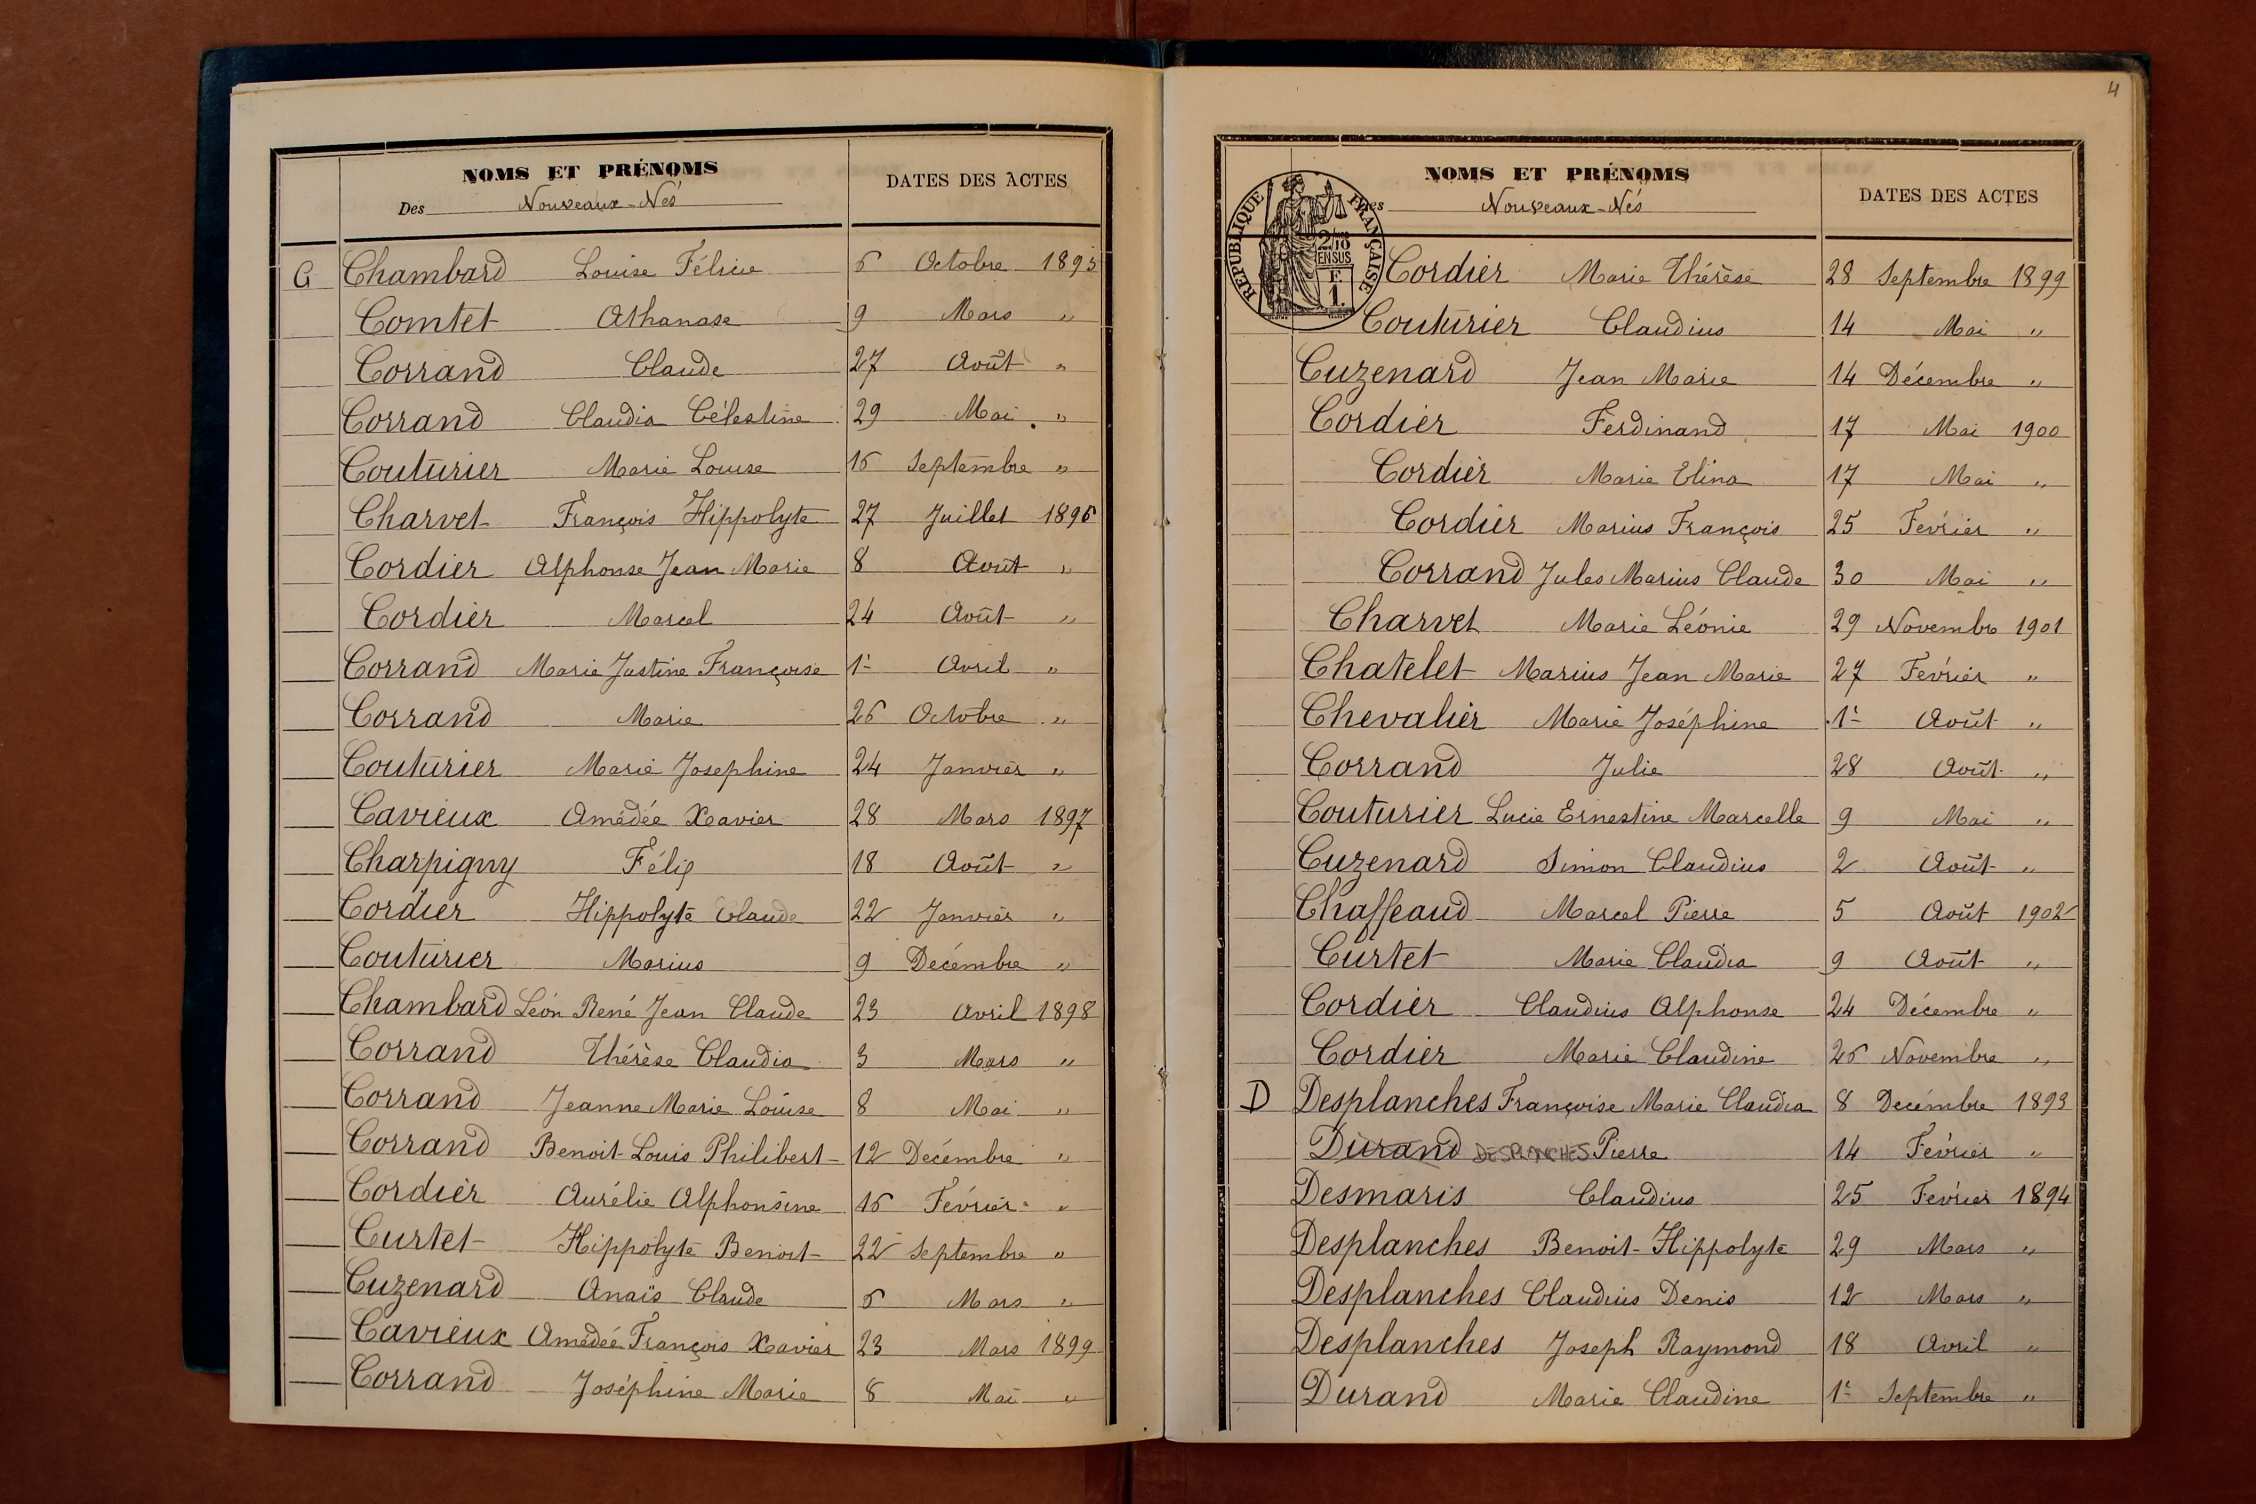 NOMS ET PRÉNOMS
Des Nouveaux-Nés
DATES DES ACTES
C Chambard Louise Félicie 6 Octobre 1895
Comtet Athanase 9 Mars "
Corrand Claude 27 Août "
Corrand Claudia Célestine 29 Mai "
Couturier Marie Louise 16 Septembre "
Charvet François Hippolyte 27 Juillet 1896
Cordier Alphonse Jean Marie 8 Août "
Cordier Marcel 24 Août "
Corrand Marie Justine Françoise 1er Avril "
Corrand Marie 26 Octobre "
Couturier Marie Josephine 24 Janvier "
Cavieux Amédée Xavier 28 Mars 1897
Charpigny Félix 18 Août "
Cordier Hippolyte Claude 22 Janvier "
Couturier Marius 9 Décembre "
Chambard Léon René Jean Claude 23 Avril 1898
Corrand Thérèse Claudia 3 Mars "
Corrand Jeanne Marie Louise 8 Mai "
Corrand Benoit Louis Philibert 12 Décembre "
Cordier Aurélie Alphonsine 16 Février "
Curtet Hippolyte Benoit 22 Septembre "
Cuzenard Anaïs Claude 6 Mars "
Cavieux Amédée François Xavier 23 Mars 1899
Corrand Joséphine Marie 8 Mai "
4
NOMS ET PRÉNOMS
des Nouveaux-Nés
DATES DES ACTES
RÉPUBLIQUE FRANÇAISE
2/10
EN SUS
F.
1.
Cordier Marie Thérèse 28 Septembre 1899
Couturier Claudius 14 Mai "
Cuzenard Jean Marie 14 Décembre "
Cordier Ferdinand 17 Mai 1900
Cordier Marie Elina 17 Mai "
Cordier Marius François 25 Février "
Corrand Jules Marius Claude 30 Mai "
Charvet Marie Léonie 29 Novembre 1901
Chatelet Marius Jean Marie 27 Février "
Chevalier Marie Joséphine 1er Août "
Corrand Julie 28 Août "
Couturier Lucie Ernestine Marcelle 9 Mai "
Cuzenard Simon Claudius 2 Août "
Chaffeaud Marcel Pierre 5 Août 1902
Curtet Marie Claudia 9 Août "
Cordier Claudius Alphonse 24 Décembre "
Cordier Marie Claudine 26 Novembre "
D Desplanches Françoise Marie Claudia 8 Decémbre 1893
Durand DESPLANCHES Pierre 14 Février "
Desmaris Claudius 25 Février 1894
Desplanches Benoit Hippolyte 29 Mars "
Desplanches Claudius Denis 12 Mars "
Desplanches Joseph Raymond 18 Avril "
Durand Marie Claudine 1er Septembre "